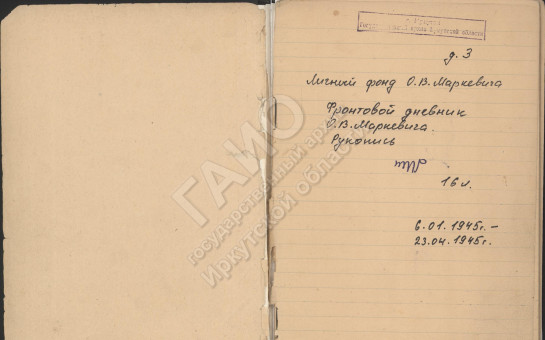 г. Иркутск
Государственный архив Иркутской области
д. 3
Личный фонд О.В. Маркевича
Фронтовой дневник
О.В. Маркевича.
Рукопись
16 л.
6.01.1945г. –
23.04.1945г.
ГАИО
государственный архив
Иркутской области